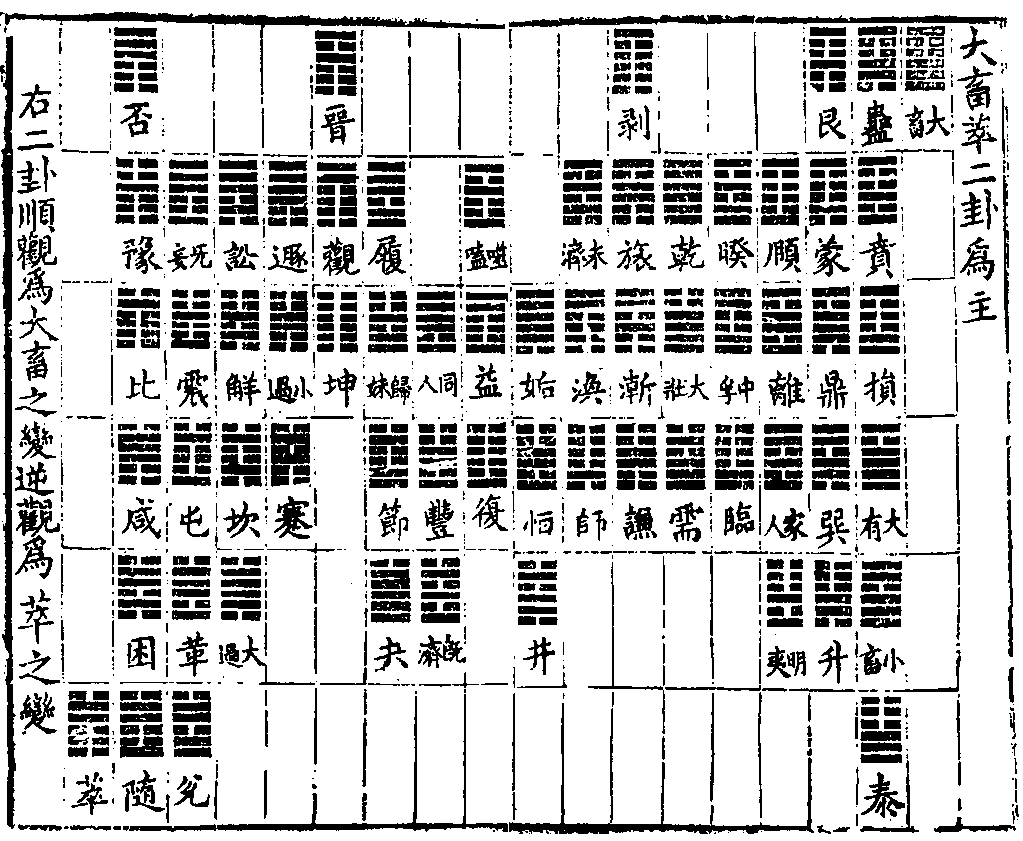 大畜萃二卦爲主
大畜
蠱
賁
損
大有
小畜
泰
艮
蒙
鼎
巽
升
頤
離
家人
明夷
睽
中孚
臨
乾
大壯
需
剥
旅
漸
謙
未濟
渙
師
姤
恒
井
噬嗑
益
復
同人
豐
既濟
履
歸妹
節
夬
晉
觀
坤
遯
小過
蹇
訟
解
坎
大過
无妄
震
屯
革
兌
否
豫
比
咸
困
隨
萃
右二卦順觀爲大畜之變逆觀爲萃之變